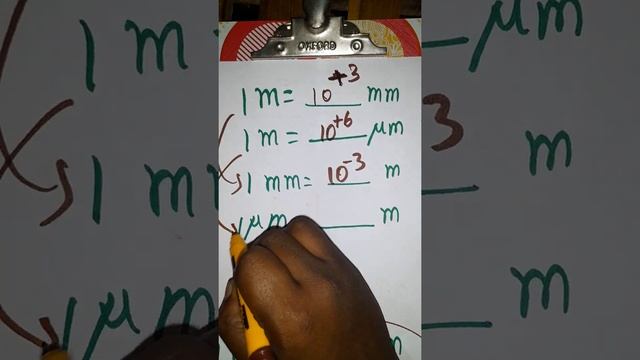 OXFORD
1 m = 10^+3 mm
1 m = 10^+6 μm
1 mm = 10^-3 m
1 μm ___ m
m